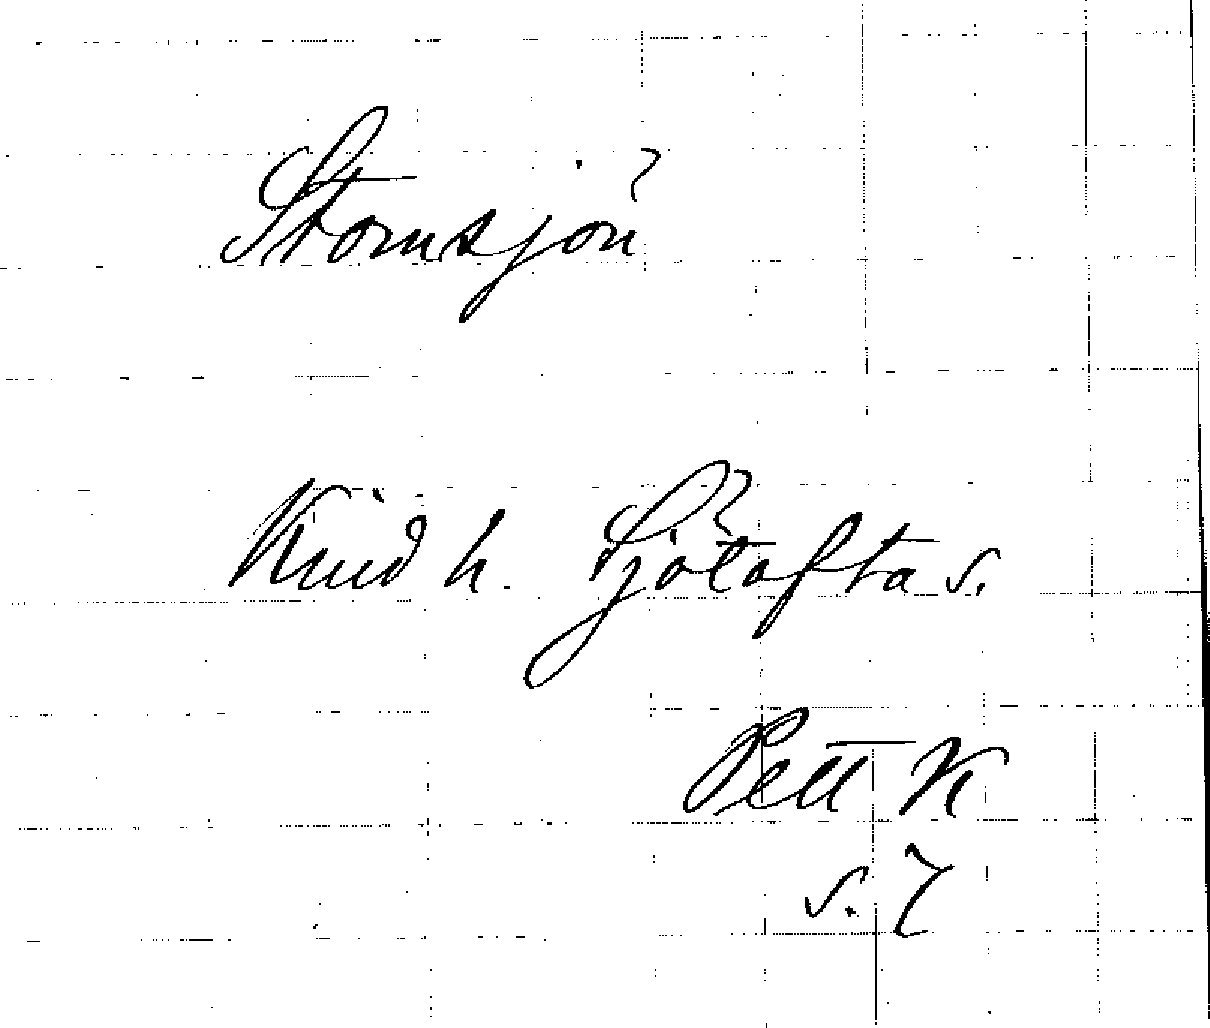 Stomsjön
Kind h. Sjötofta s.
Pett K
s. 7